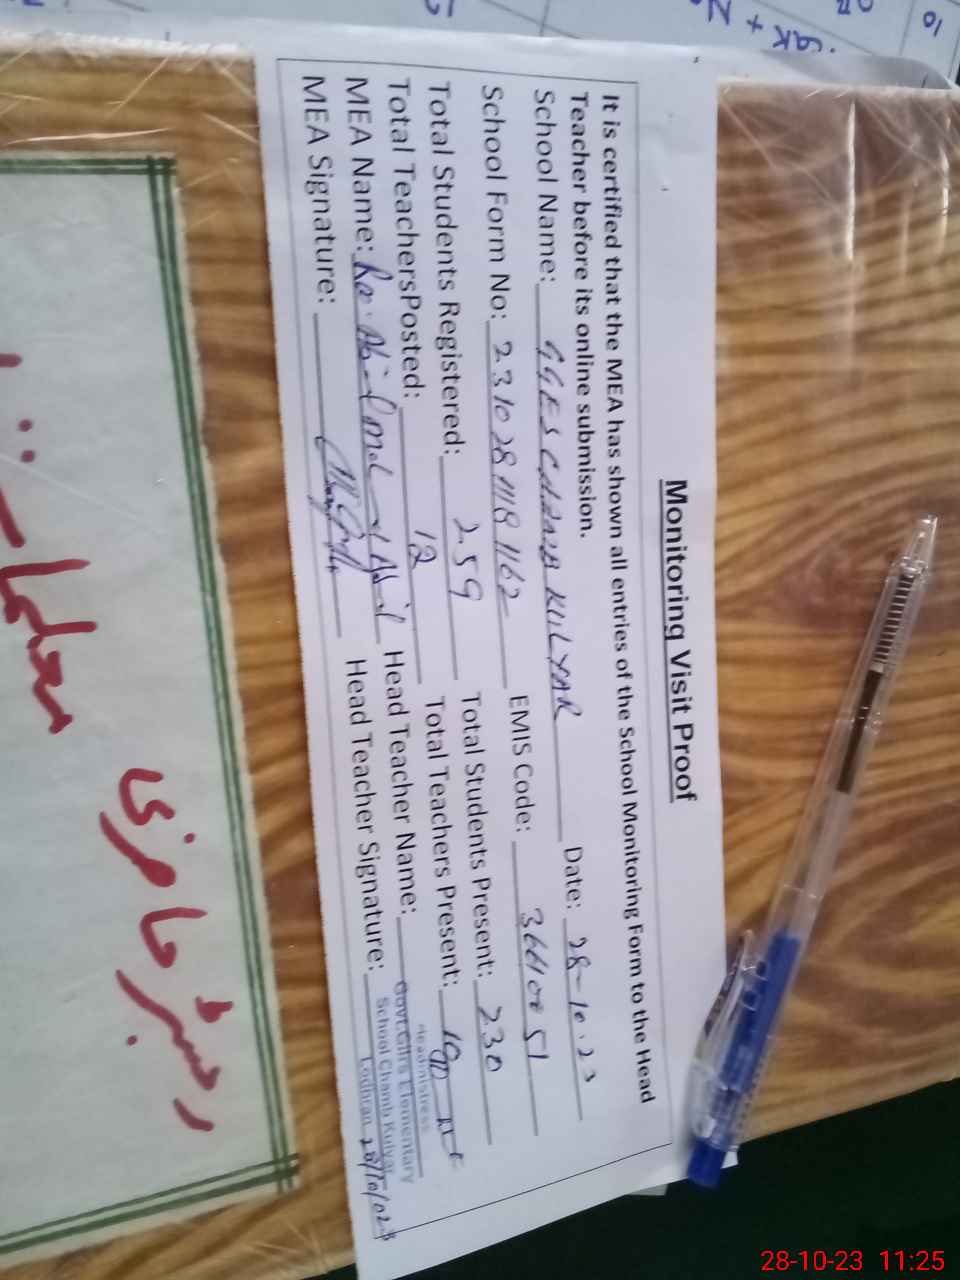 Monitoring Visit Proof
It is certified that the MEA has shown all entries of the School Monitoring Form to the Head
Teacher before its online submission.
School Name: GGES CHAMB KULYAR Date: 28-10-23
School Form No: EMIS Code: 36610051
Total Students Registered: 259 Total Students Present: 230
Total TeachersPosted: 12 Total Teachers Present:
MEA Name: Head Teacher Name:
MEA Signature: Head Teacher Signature:
Headmistress
Govt. Girls Elementary
School Chamb Kulyar
Lodhran
رجسٹر حاضری معلمات
28-10-23 11:25